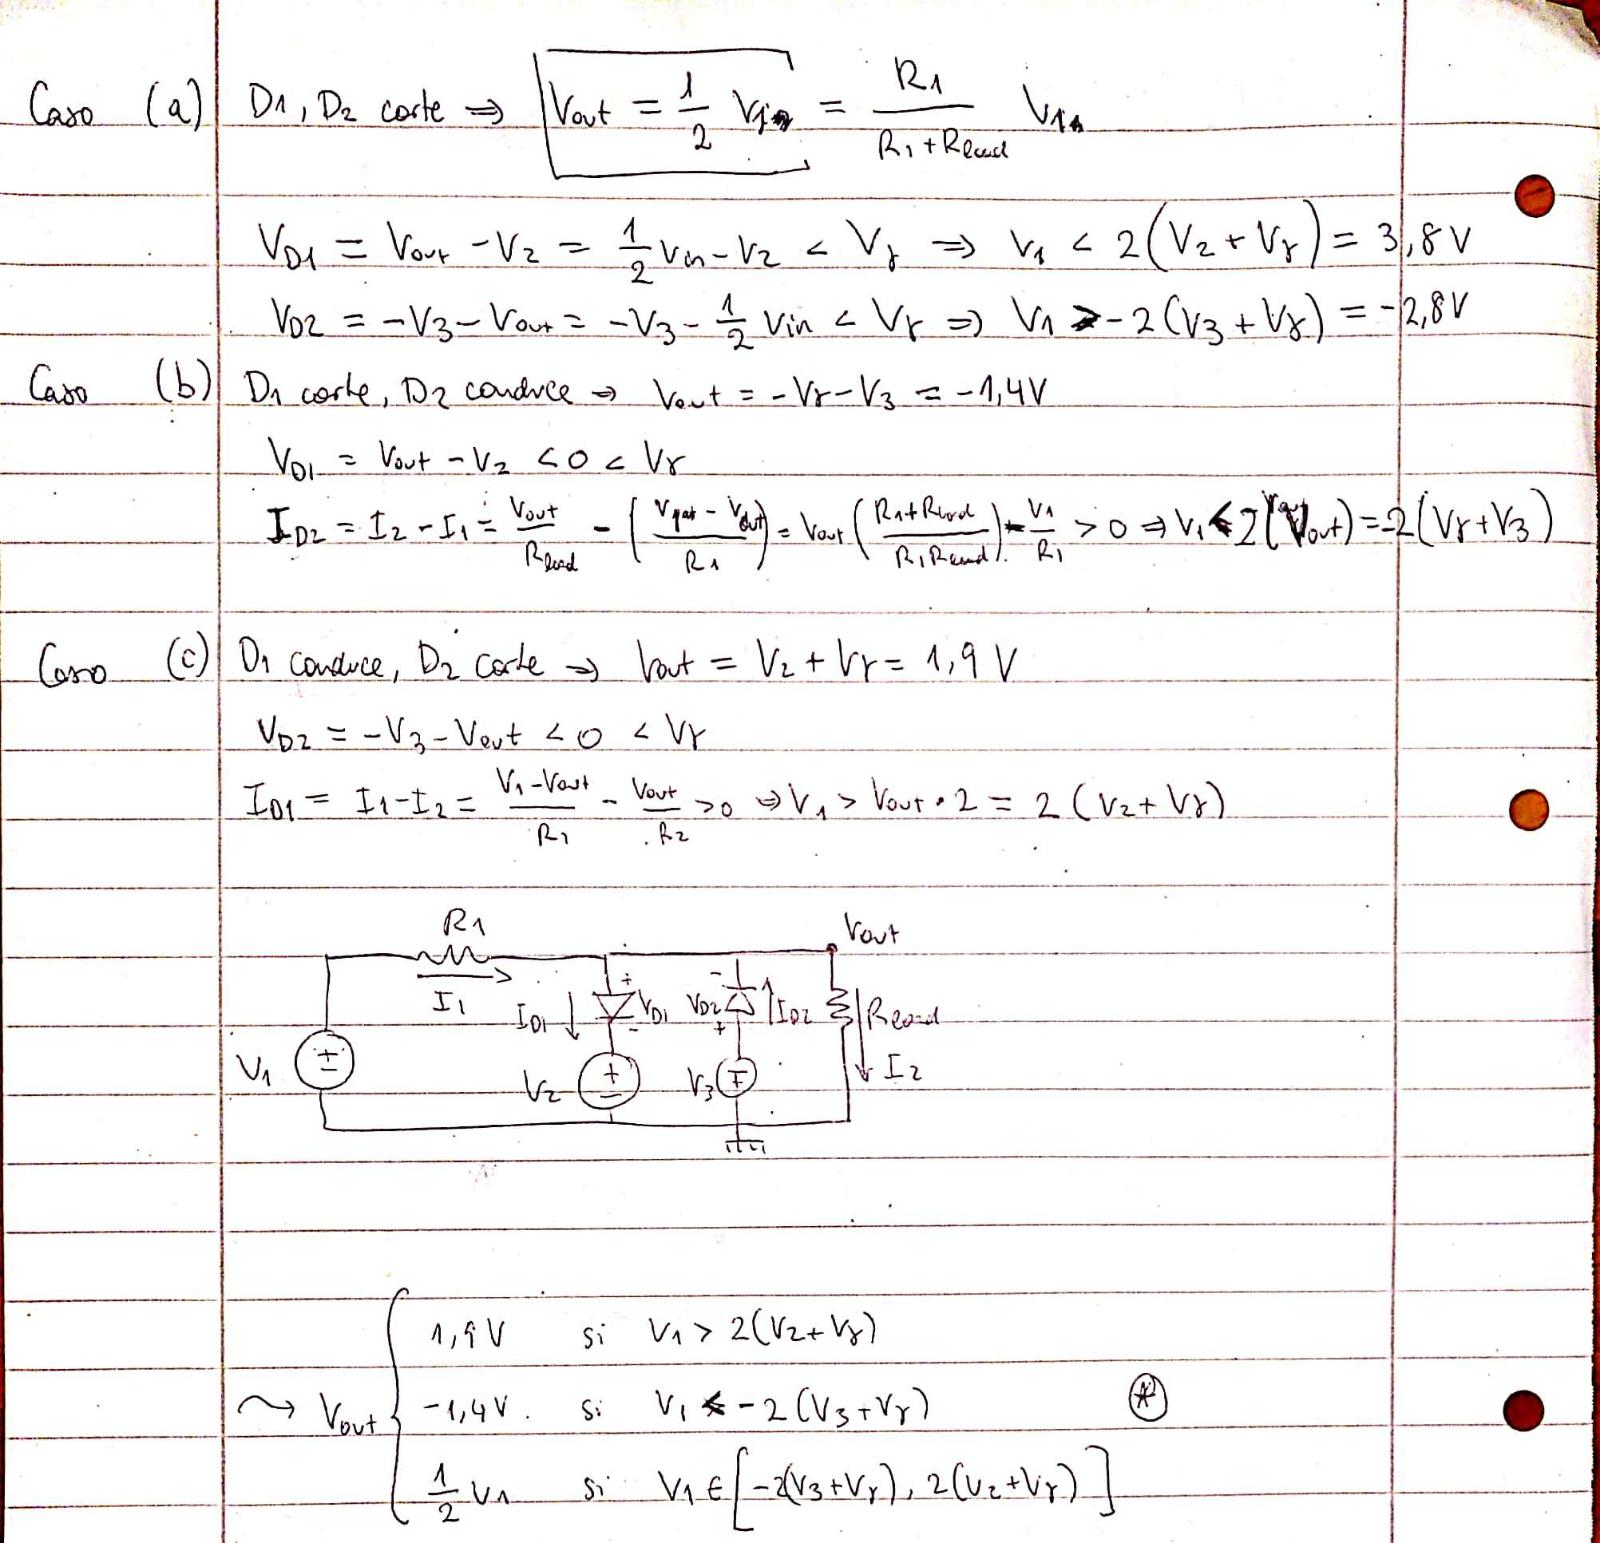 Caso (a) D1, D2 corte ⇒ Vout = 1/2 Vin = R1/(R1+Rload) Vin
VD1 = Vout - V2 = 1/2 Vin - V2 < Vγ ⇒ V1 < 2(V2 + Vγ) = 3,8 V
VD2 = -V3 - Vout = -V3 - 1/2 Vin < Vγ ⇒ V1 > -2(V3 + Vγ) = -2,8 V
Caso (b) D1 corte, D2 conduce → Vout = -Vγ - V3 = -1,4 V
VD1 = Vout - V2 < 0 < Vγ
ID2 = I2 - I1 = Vout/Rload - ( - Vout)/R1 = Vout ((R1+Rload)/(R1Rload)) - V1/R1 > 0 ⇒ V1 < 2(Vout) = -2(Vγ + V3)
Caso (c) D1 conduce, D2 corte → Vout = V2 + Vγ = 1,9 V
VD2 = -V3 - Vout < 0 < Vγ
ID1 = I1 - I2 = (V1 - Vout)/R1 - Vout/R2 > 0 ⇒ V1 > Vout · 2 = 2(V2 + Vγ)
R1
Vout
I1
ID1
+ VD1 -
- VD2 +
ID2
Rload
V1
+ -
V2
+ -
V3
I2
1,9 V si V1 > 2(V2 + Vγ)
⇝ Vout -1,4 V. si V1 < -2(V3 + Vγ) ⊛
1/2 V1 si V1 ∈ [-2(V3 + Vγ), 2(V2 + Vγ)]